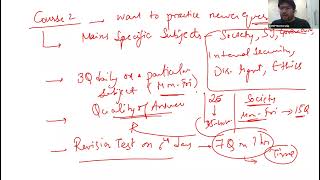 Course 2 → want to practice newer ques
→ Mains Specific Subjects → Society, SJ, Governance
Internal Security,
Dis. Mgmt, Ethics
→ 3Q daily on a particular
subject (Mon-Fri)
→ Quality of Answer
Society
Mon-Fri → 15Q
→ Revision Test on 6th day → 7Q in 1 hr
(Time)